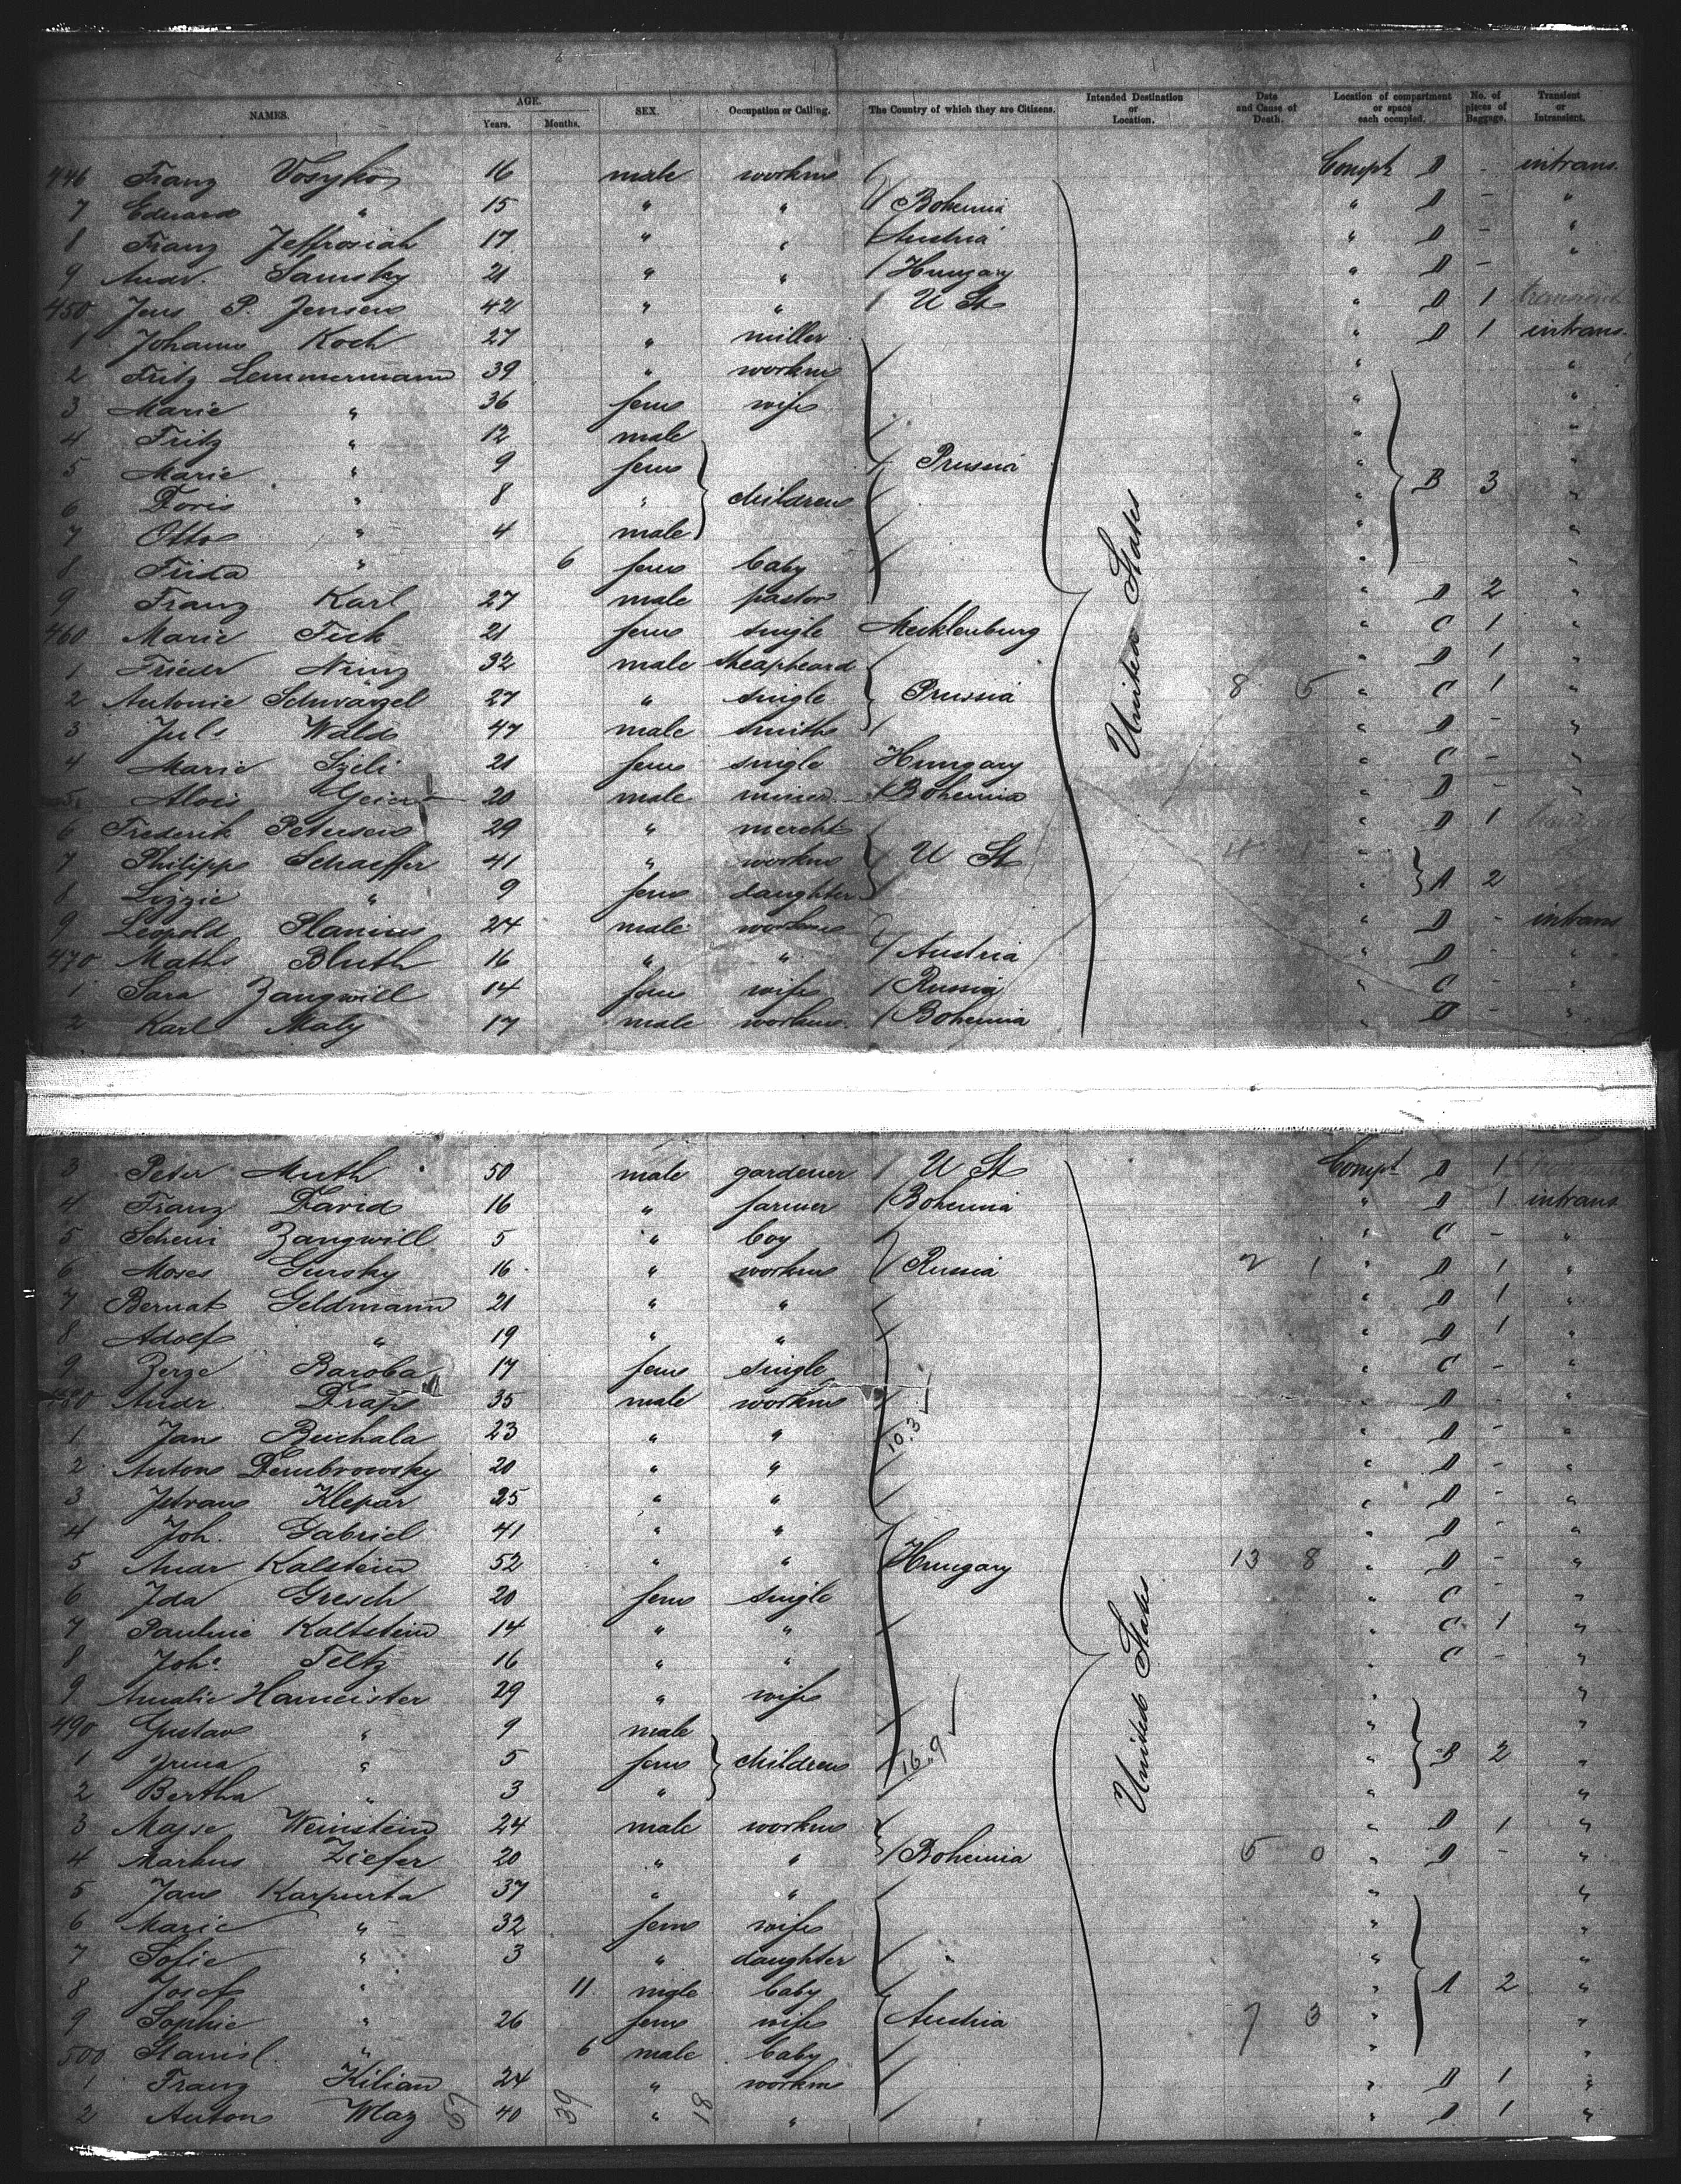 NAMES. AGE. Years. Months. SEX. Occupation or Calling. The Country of which they are Citizens. Intended Destination or Location. Date and Cause of Death. Location of compartment or space each occupied. No. of pieces of Baggage. Transient or Intransient.
446 Franz 16 male workm Compt D - intrans.
7 Eduard " 15 " " Bohemia " D - "
8 Franz 17 " " Austria " D - "
9 Andr. Samsky 21 " " Hungary " D - "
450 Jens P. Jensen 42 " " U St " D 1
1 Johann Koch 27 " miller " D 1 intrans.
2 Fritz Lemmermann 39 " workm " "
3 Marie " 36 fem wife " "
4 Fritz " 12 male " "
5 Marie " 9 fem Prussia " "
6 Doris " 8 " children " B 3 "
7 Otto " 4 male " "
8 Frida " 6 fem baby " "
9 Franz Karl 27 male pastor " D 2 "
460 Marie Fick 21 fem single Mecklenburg " C 1 "
1 Friedr 32 male sheapheard " D 1 "
2 Antonie Schwarzel 27 " single Prussia 8 5 " C 1 "
3 Juls Wald 47 male smith " D - "
4 Marie Szeli 21 fem single Hungary " C - "
5 Alois Geier 20 male miner Bohemia " D - "
6 Frederik Petersen 29 " mercht " D 1
7 Philipp Schaeffer 41 " workm U St "
8 Lizzie " 9 fem daughter " A 2
9 Leopold 24 male workm " D - intrans
470 Maths Bluth 16 " " Austria " D - "
1 Sara Zangwill 14 fem wife Russia " C - "
2 Karl Maly 17 male workm Bohemia " D - "
United States
3 Peter Muth 50 male gardener U St Compt D 1
4 Franz David 16 " farmer Bohemia " D 1 intrans
5 Zangwill 5 " boy " C - "
6 Moses Gursky 16 " workm Russia 2 1 " D 1 "
7 Bernat Geldmann 21 " " " D 1 "
8 Adolf " 19 " " " D 1 "
9 Baroba 17 fem single " C - "
480 Andr. Drap 35 male workm " D - "
1 Jan Buchala 23 " " 10.3 " D - "
2 Anton Dembrowsky 20 " " " D - "
3 Klepar 25 " " " D - "
4 Joh. Gabriel 41 " " " D - "
5 Andr Kalstein 52 " " Hungary 13 8 " D - "
6 Ida Gresch 20 fem single " C - "
7 Pauline Kaltstein 14 " " " C 1 "
8 Joh. Teltz 16 " " " C - "
9 Amalie Hameister 29 " wife " "
490 Gustav " 9 male " "
1 " 5 fem children 16.9 " B 2 "
2 Bertha " 3 " " "
3 Majse Weinstein 24 male workm " D 1 "
4 Markus Ziefer 20 " " Bohemia 5 0 " D - "
5 Jan Karpurta 37 " " " "
6 Marie " 32 fem wife " "
7 Sofie " 3 " daughter " "
8 Josef " 11 male baby " A 2 "
9 Sophie " 26 fem wife Austria 7 3 " "
500 Stanisl. " 6 male baby " "
1 Franz Kilian 24 " workm " D 1 "
2 Anton 40 " " " D 1 "
United States
57 39 18